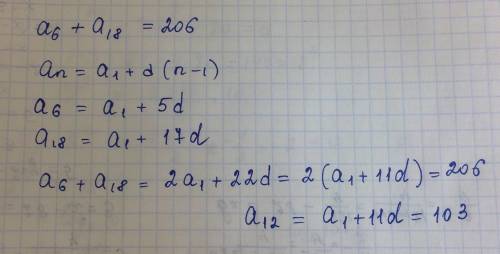 a₆ + a₁₈ = 206
aₙ = a₁ + d (n-1)
a₆ = a₁ + 5d
a₁₈ = a₁ + 17d
a₆ + a₁₈ = 2a₁ + 22d = 2(a₁ + 11d) = 206
a₁₂ = a₁ + 11d = 103